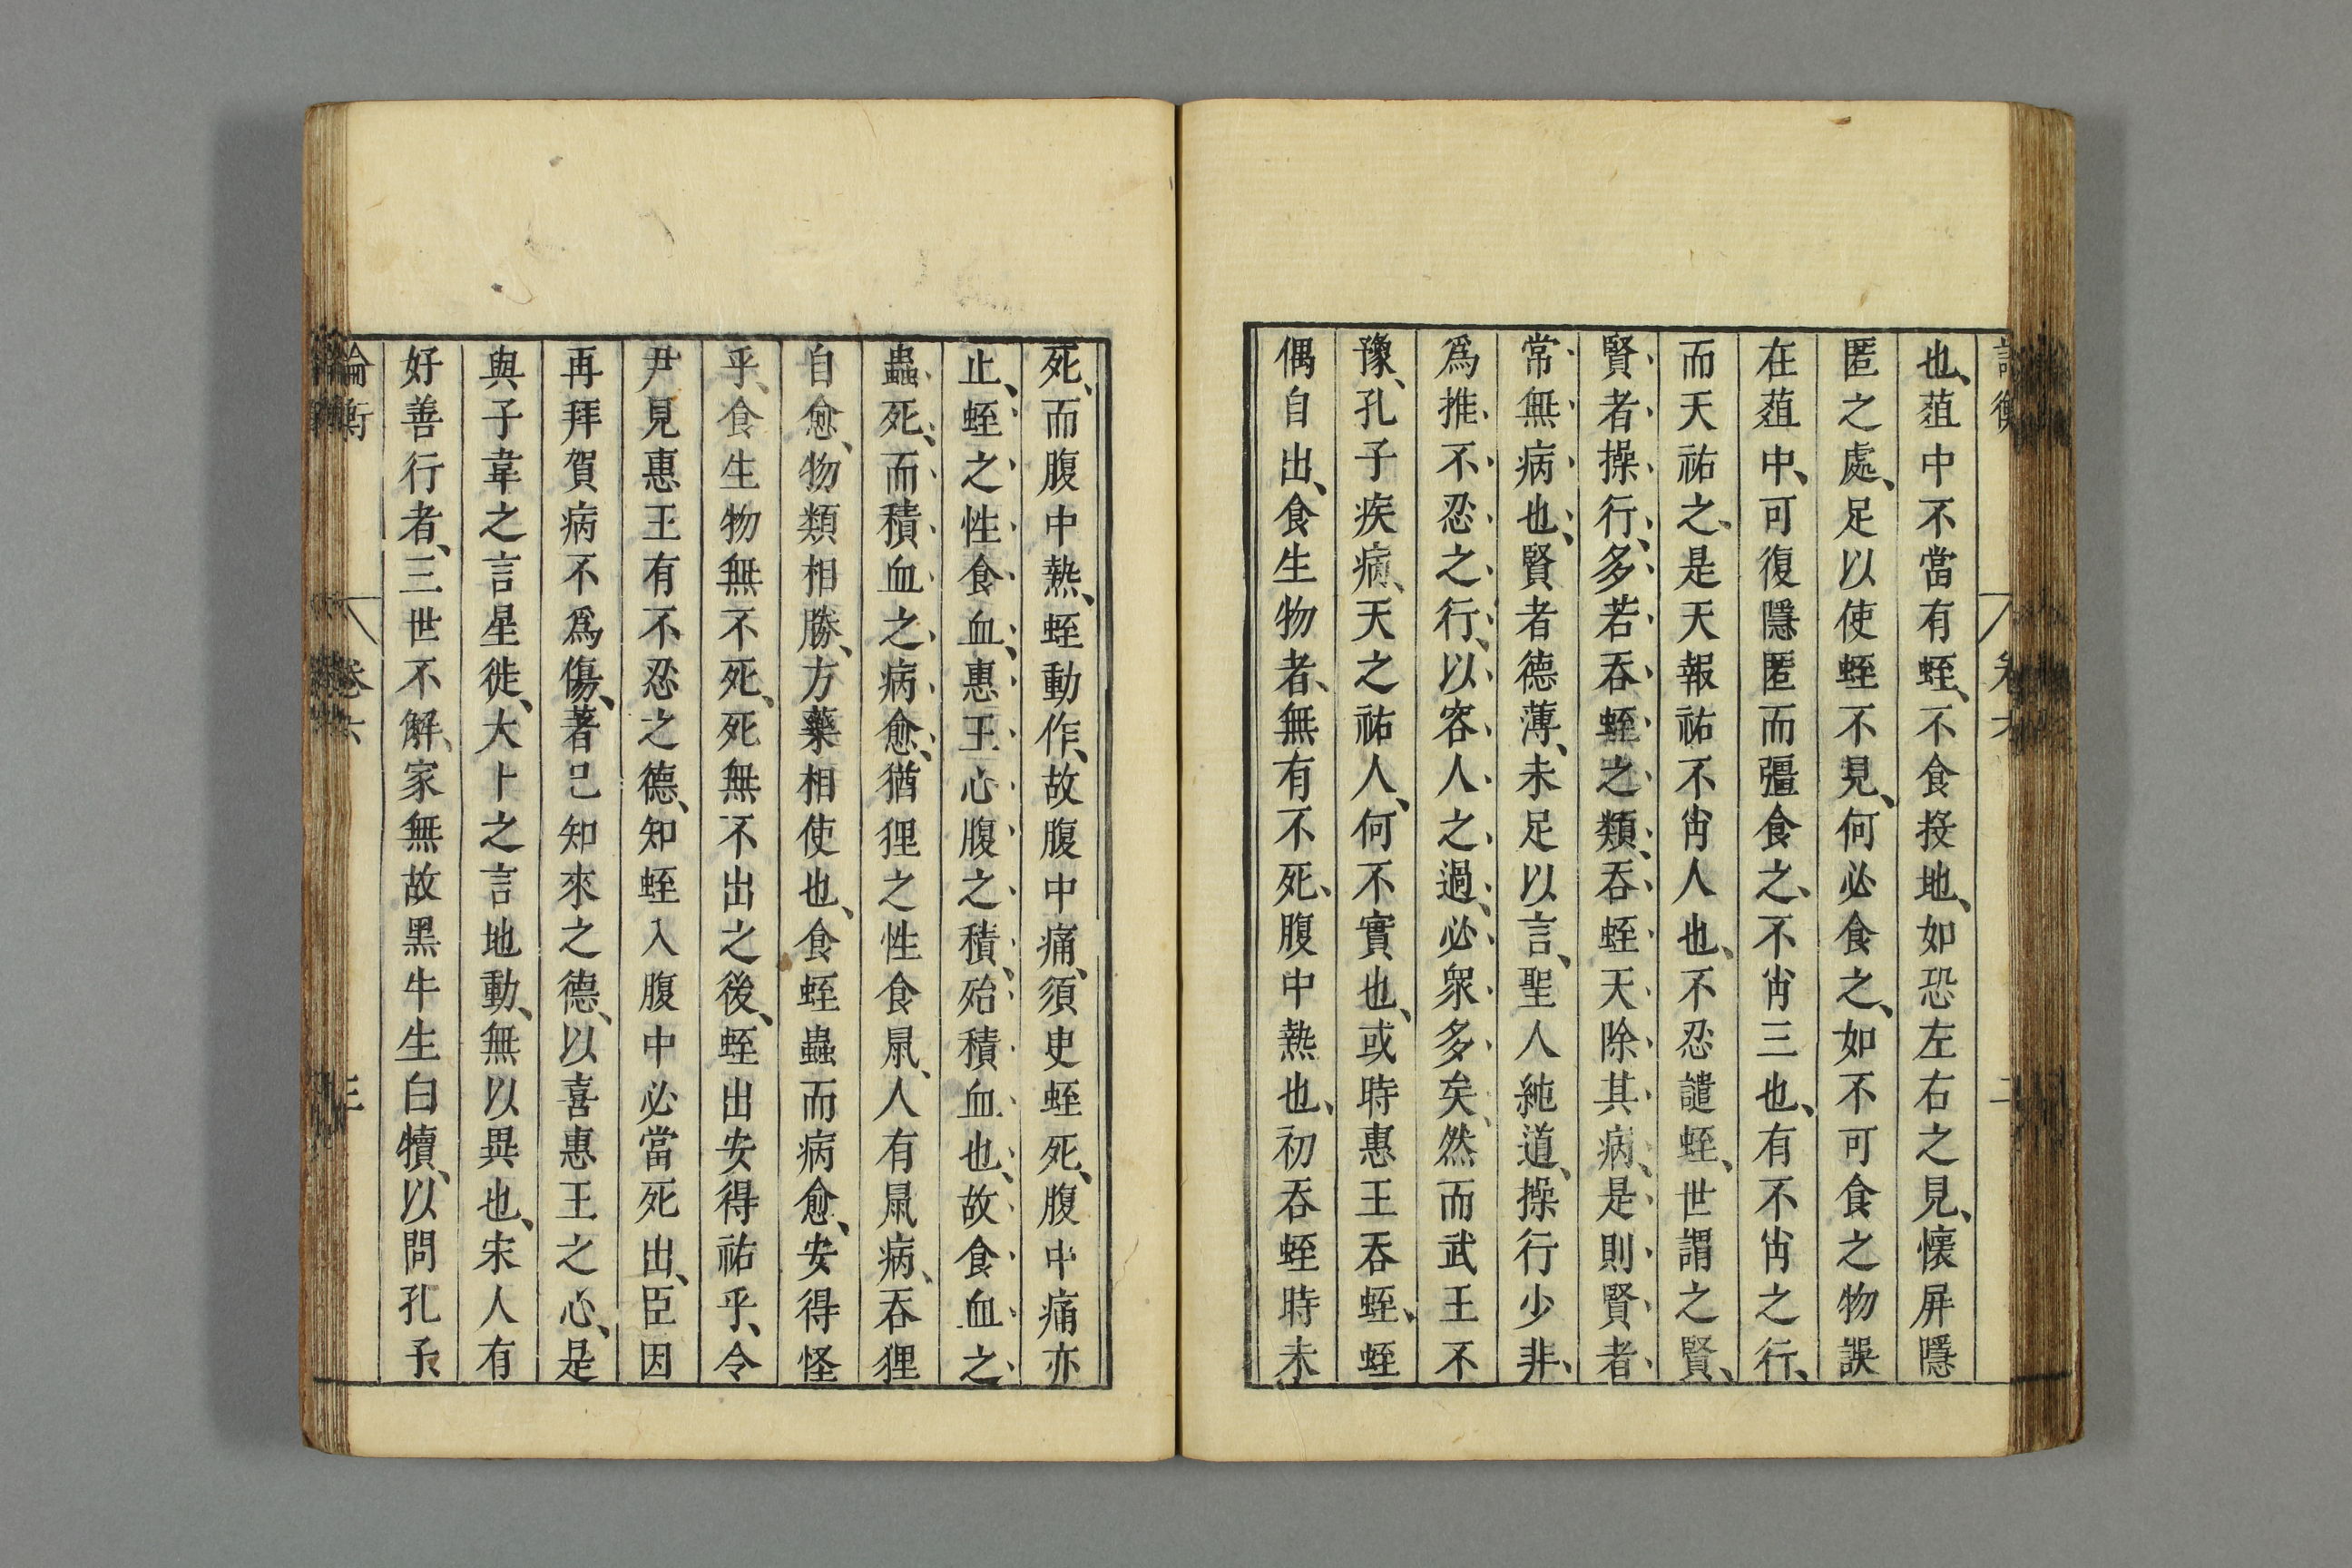 論衡 卷六 二
也、葅中不當有蛭、不食投地、如恐左右之見、懷屏隱
匿之處、足以使蛭不見、何必食之、如不可食之物誤
在葅中、可復隱匿而彊食之、不肖三也、有不肖之行、
而天祐之、是天報祐不肖人也、不忍譴蛭、世謂之賢、
賢者操行、多若吞蛭之類、吞蛭天除其病、是則賢者
常無病也、賢者德薄、未足以言、聖人純道、操行少非、
爲推不忍之行、以容人之過、必衆多矣、然而武王不
豫、孔子疾病、天之祐人、何不實也、或時惠王吞蛭、蛭
偶自出、食生物者、無有不死、腹中熱也、初吞蛭時未
死、而腹中熱、蛭動作、故腹中痛、須吏蛭死、腹中痛亦
止、蛭之性食血、惠王心腹之積、殆積血也、故食血之
蟲死、而積血之病愈、猶狸之性食鼠、人有鼠病、吞狸
自愈、物類相勝、方藥相使也、食蛭蟲而病愈、安得怪
乎、食生物無不死、死無不出之後、蛭出安得祐乎、令
尹見惠王有不忍之德、知蛭入腹中必當死出、臣因
再拜賀病不爲傷、著已知來之德、以喜惠王之心、是
與子韋之言星徙、大卜之言地動、無以異也、宋人有
好善行者、三世不解、家無故黑牛生白犢、以問孔子
論衡 卷六 三